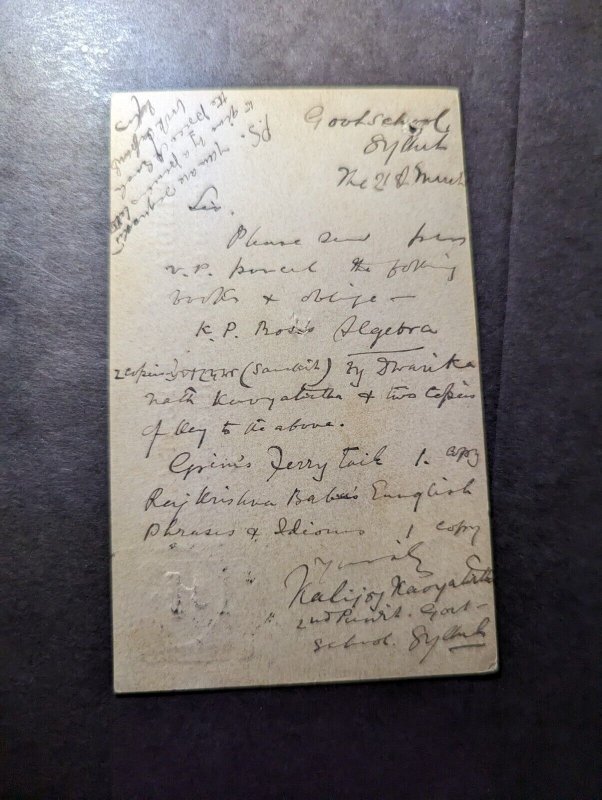 Govt School,
Sylhet
The 21st March
Sir,
Please send per
V.P. parcel the following
books & oblige —
K. P. Bose's Algebra
2 copies (Sanskrit) by Dwarika
nath Kavyatirtha & two copies
of key to the above.
Grim's Ferry Tail 1. copy
Raj Krishna Babu's Eunglish
Phrases & Idioms 1 copy
Yours
Kalijoy Kavyatirtha
2nd Pundit. Govt
School. Sylhet
P.S.
You are requested
by a
the price of